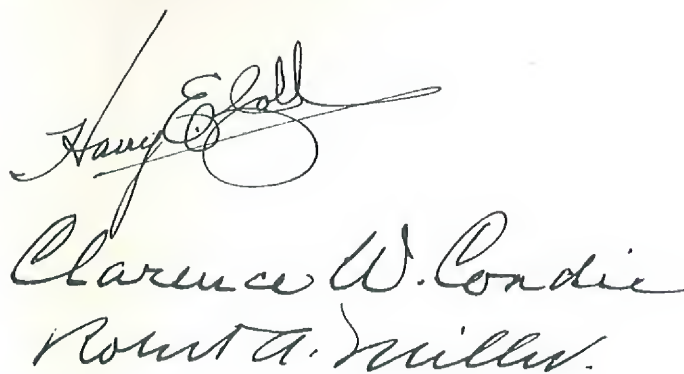 Harry E.
Clarence W. Condie
Robert A. Miller.